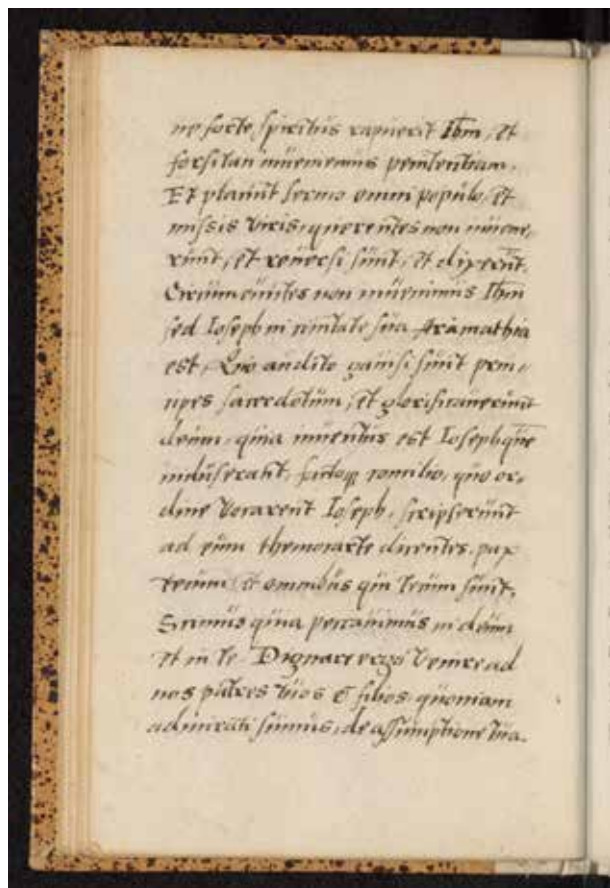 ne forte spiritus rapuerit Ihm, et
forsitan inueniemus penitentiam.
Et placuit sermo omni populo, et
missis viris querentes non inuene,
runt, et reuersi sunt, et dixerunt.
Circumeuntes non inuenimus Ihm
sed Ioseph in ciuitate sua Aramathia
est. Quo audito gauisi sunt prin,
cipes sacerdotum, et glorificauerunt
deum, quia inuentus est Ioseph que
incluserant, factoq; consilio, quo or,
dine vocarent Ioseph, scripserunt
ad eum dicentes, pax
tecum et omnibus qui tecum sunt,
Scimus quia peccauimus in deum
et in te. Dignare ergo venire ad
nos patres tuos & filios, quoniam
admirati sumus, de assumptione tua.